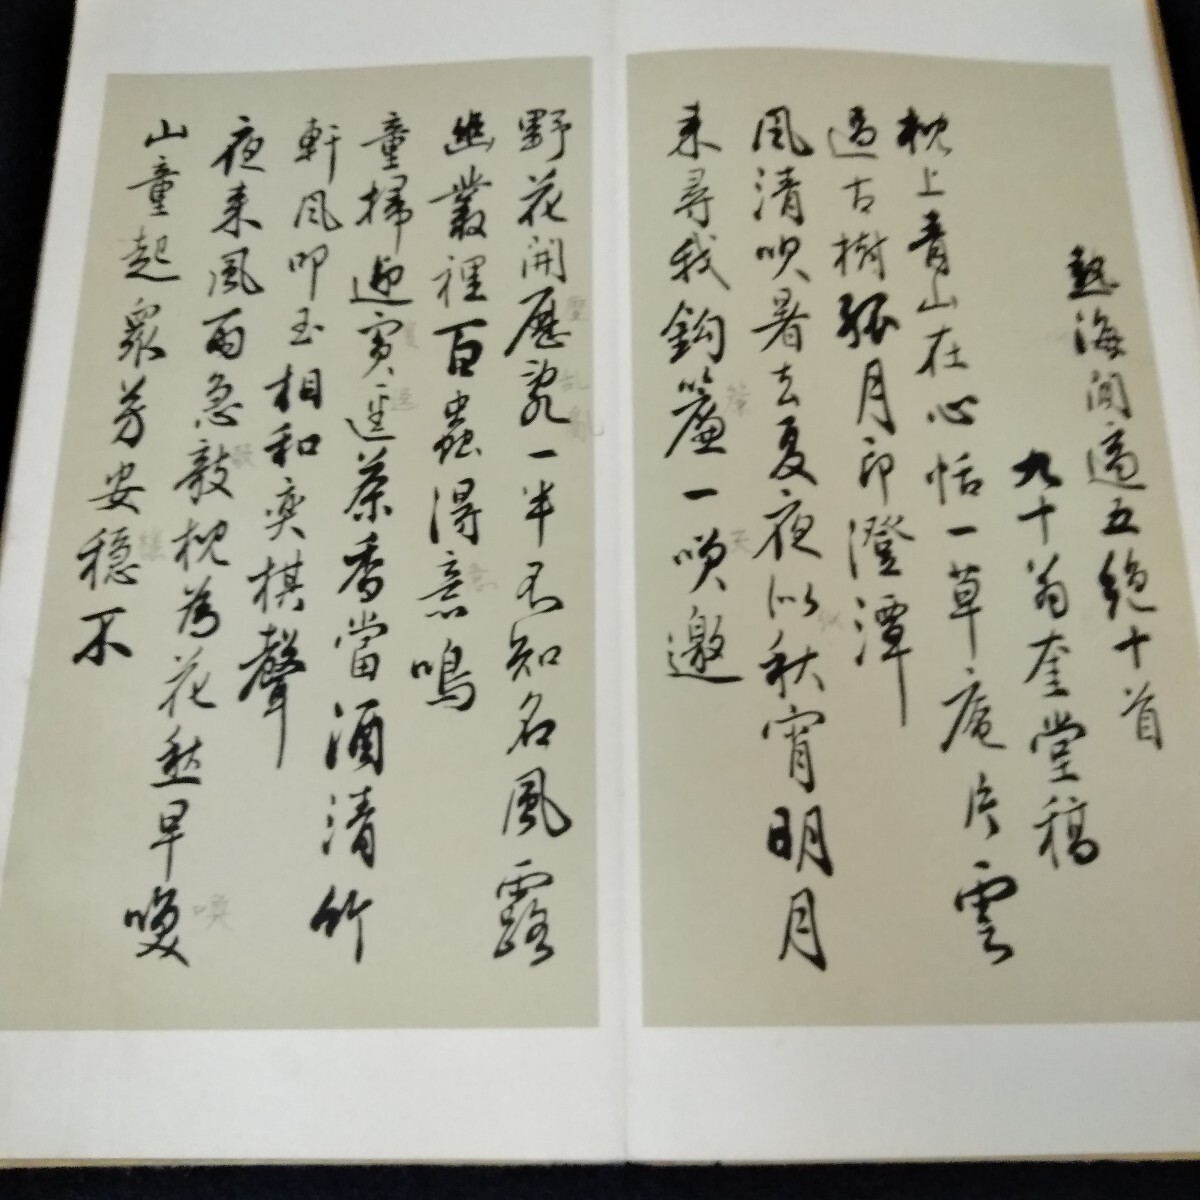 熱海閒適五絶十首
九十翁奎堂稿
枕上青山在心恬一草庵片雲
過古樹孤月印澄潭
風清吹暑去夏夜似秋宵明月
来尋我鈎簾一咲邀
野花開歴亂一半不知名風露
幽叢裡百蟲得意鳴
童掃迎賓逕茶香當酒清竹
軒風叩玉相和奕棋聲
夜来風雨急敧枕為花愁早喚
山童起衆芳安穏不